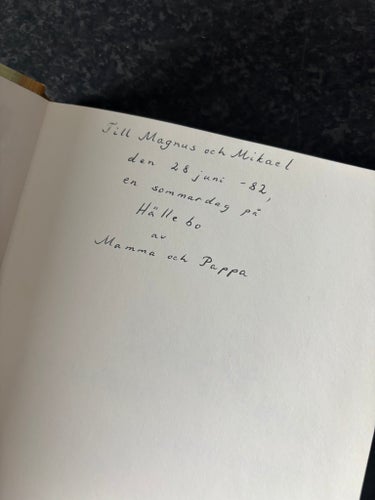 Till Magnus och Mikael
den 28 juni -82,
en sommardag på
Hällebo
av
Mamma och Pappa